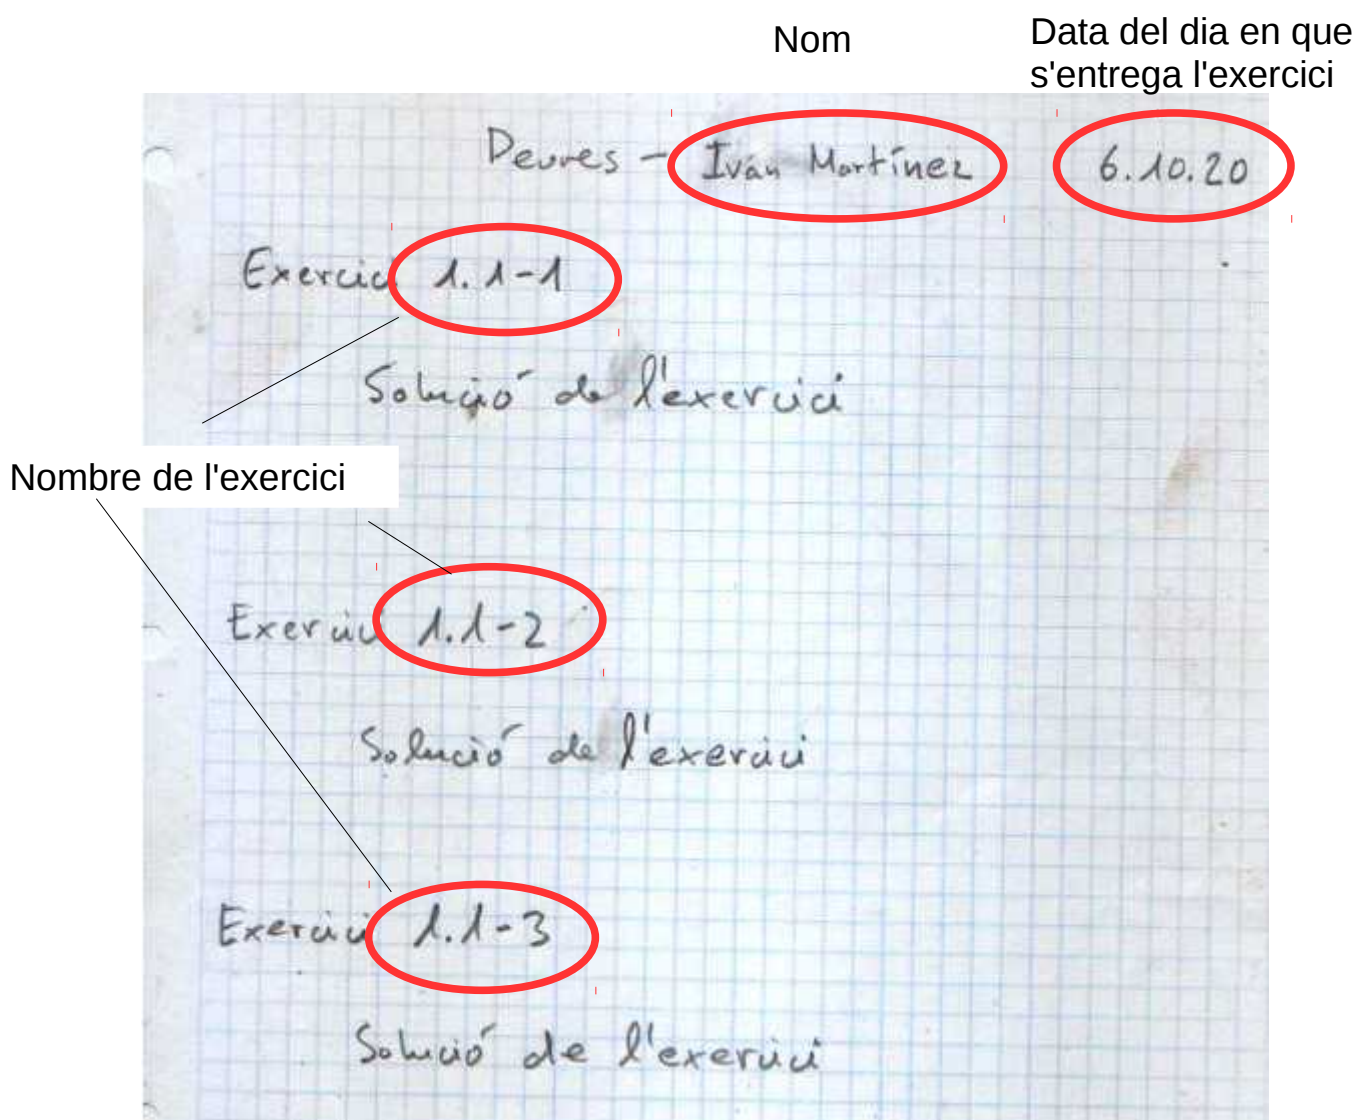 Nom
Data del dia en que
s'entrega l'exercici
Deures - Iván Martínez 6.10.20
Exercici 1.1-1
Solució de l'exercici
Nombre de l'exercici
Exercici 1.1-2
Solució de l'exercici
Exercici 1.1-3
Solució de l'exercici